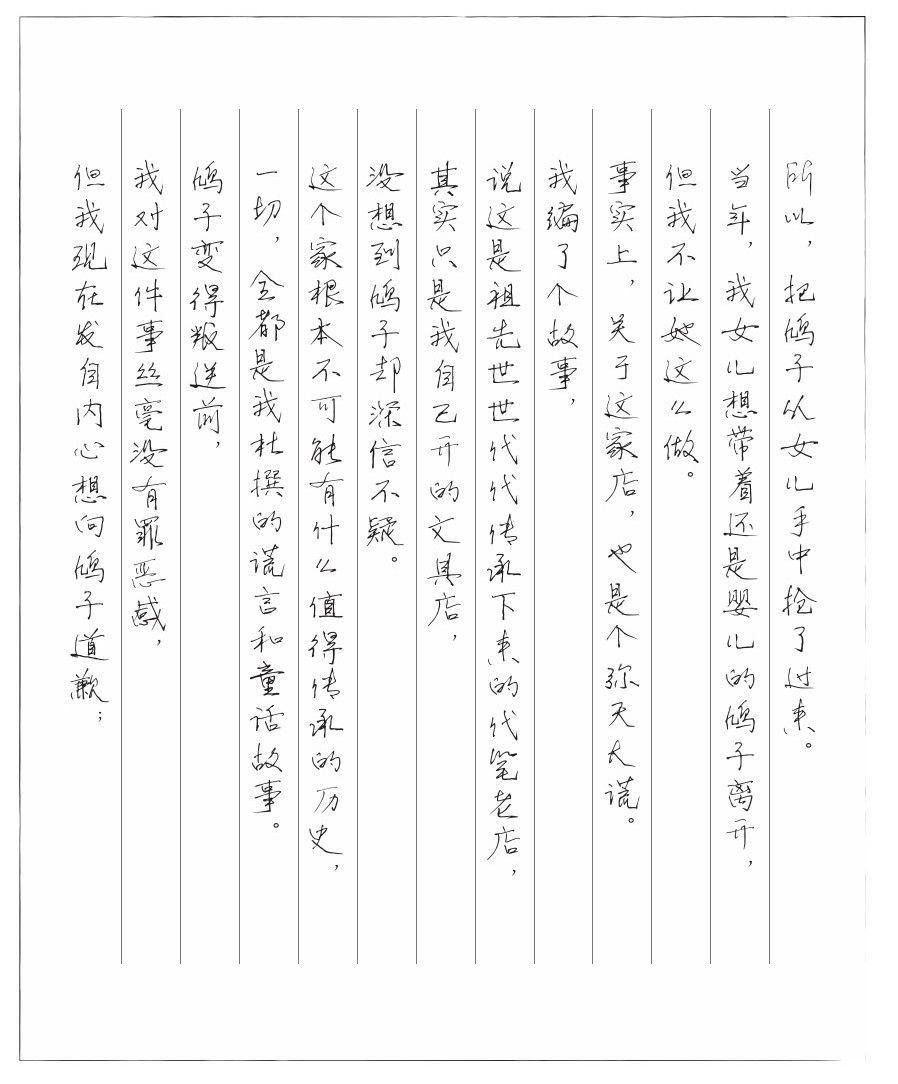 所以，把鸠子从女儿手中抢了过来。
当年，我女儿想带着还是婴儿的鸠子离开，
但我不让她这么做。
事实上，关于这家店，也是个弥天大谎。
我编了个故事，
说这是祖先世世代代传承下来的代笔老店，
其实只是我自己开的文具店，
没想到鸠子却深信不疑。
这个家根本不可能有什么值得传承的历史，
一切，全都是我杜撰的谎言和童话故事。
鸠子变得叛逆前，
我对这件事丝毫没有罪恶感，
但我现在发自内心想向鸠子道歉；